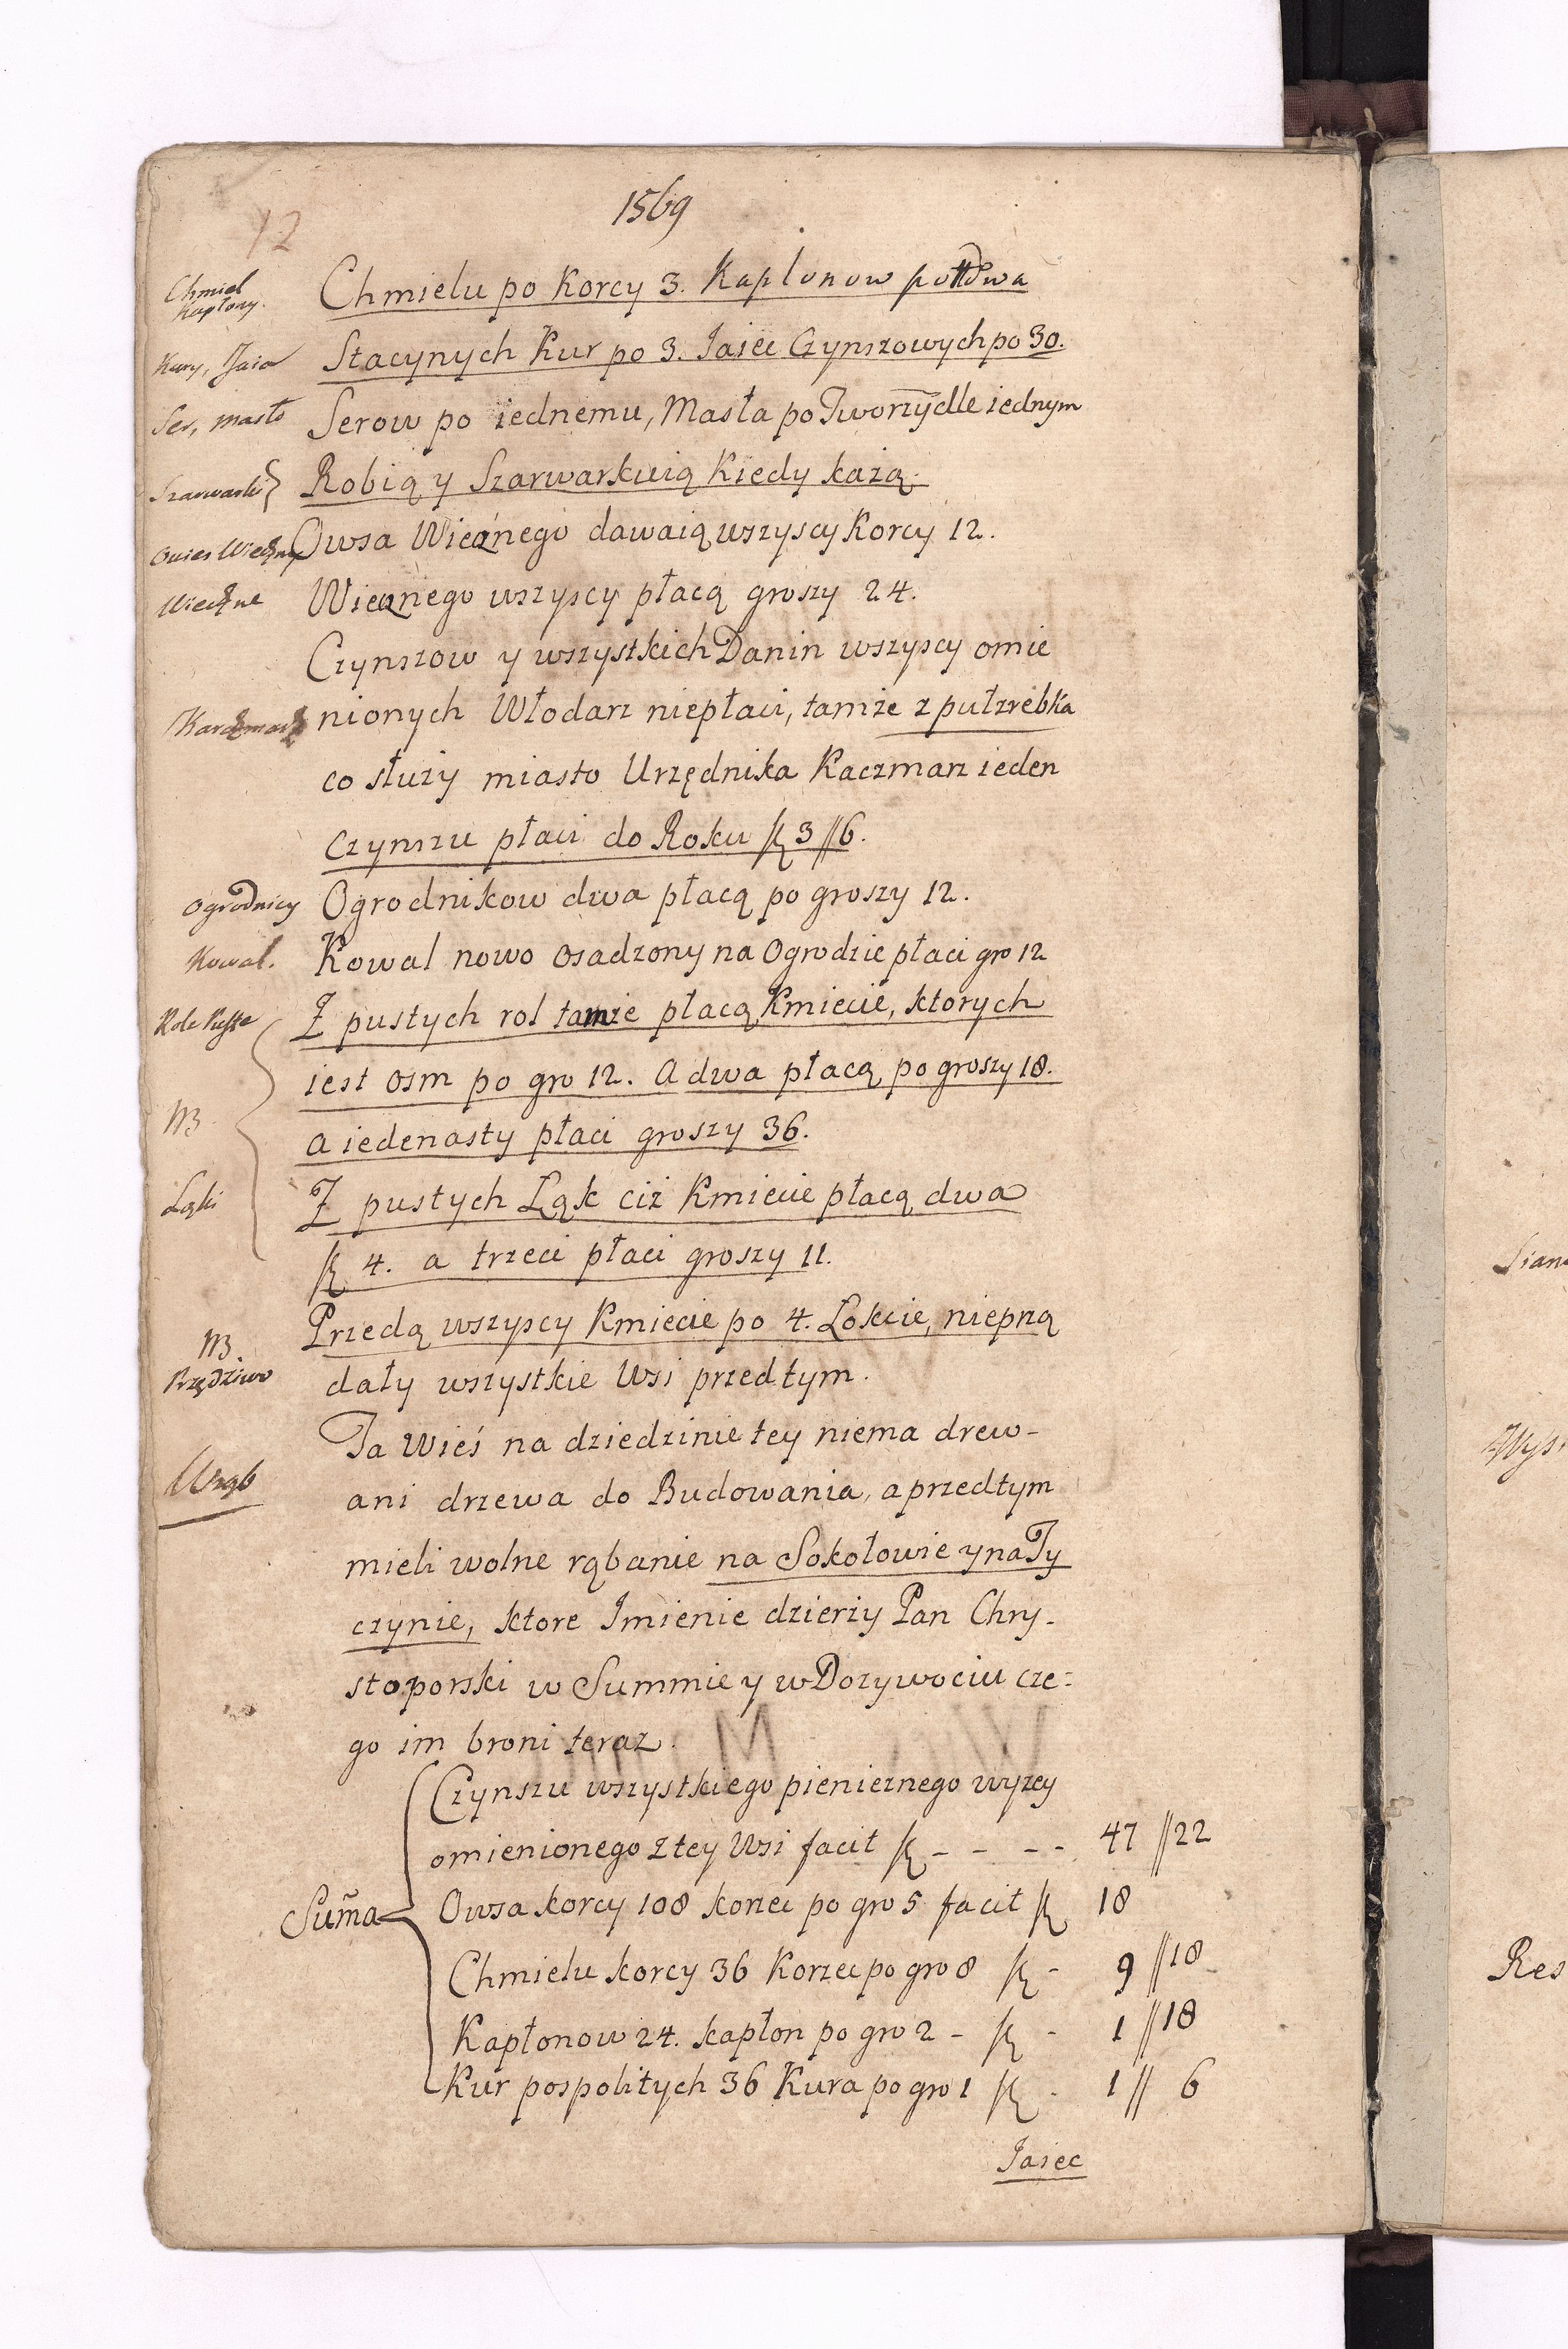 12
1569
Chmiel
Kapłony.
Chmielu po Korcy 3. Kaplonow po dwa
Kury, Jaia
Stacynych Kur po 3. Jaiec Czynszowych po 30.
Ser, masło
Serow po iednemu, Masła po Tworzydlle iednym
Szarwarki
Robią y Szarwarkuią Kiedy każą.
Owies Wieczny
Owsa Wiecznego dawaią wszyscy Korcy 12.
Wieczne
Wiecznego wszyscy płacą groszy 24.
Czynszow y wszystkich Danin wszyscy omie
Karczmarz
nionych Włodarz niepłaci, tamże z pułzrebka
co służy miasto Urzędnika Kaczmarz ieden
czynszu płaci do Roku 3 // 6.
Ogrodnicy
Ogrodnikow dwa płacą po groszy 12.
Kowal.
Kowal nowo osadzony na Ogrodzie płaci gro 12
Role Puste
Z pustych rol tamże płacą Kmiecie, ktorych
iest osm po gro 12. a dwa płacą po groszy 18.
NB
a iedenasty płaci groszy 36.
Łąki
Z pustych Łąk ciż Kmiecie płacą dwa
4. a trzeci płaci groszy 11.
Przedą wszyscy Kmiecie po 4. Łokcie, nieprzą
NB.
Przędziwo
dały wszystkie Wsi przedtym.
Ta Wieś na dziedzinie tey niema drew-
Wrąb
ani drzewa do Budowania, a przedtym
mieli wolne rąbanie na Sokołowie y na Ty
czynie, ktore Imienie dzierży Pan Chry-
stoporski w Summie y w Dożywociu cze:
go im broni teraz.
Czynszu wszystkiego pienieznego wyzey
omienionego z tey Wsi facit - - - - 47 // 22
Sum̃a
Owsa korcy 108 korzec po gro 5 facit 18
Chmielu korcy 36 Korzec po gro 8 - 9 // 18
Kapłonow 24. kapłon po gro 2 - - 1 // 18
Kur pospolitych 36 Kura po gro 1 - 1 // 6
Jaiec
Res